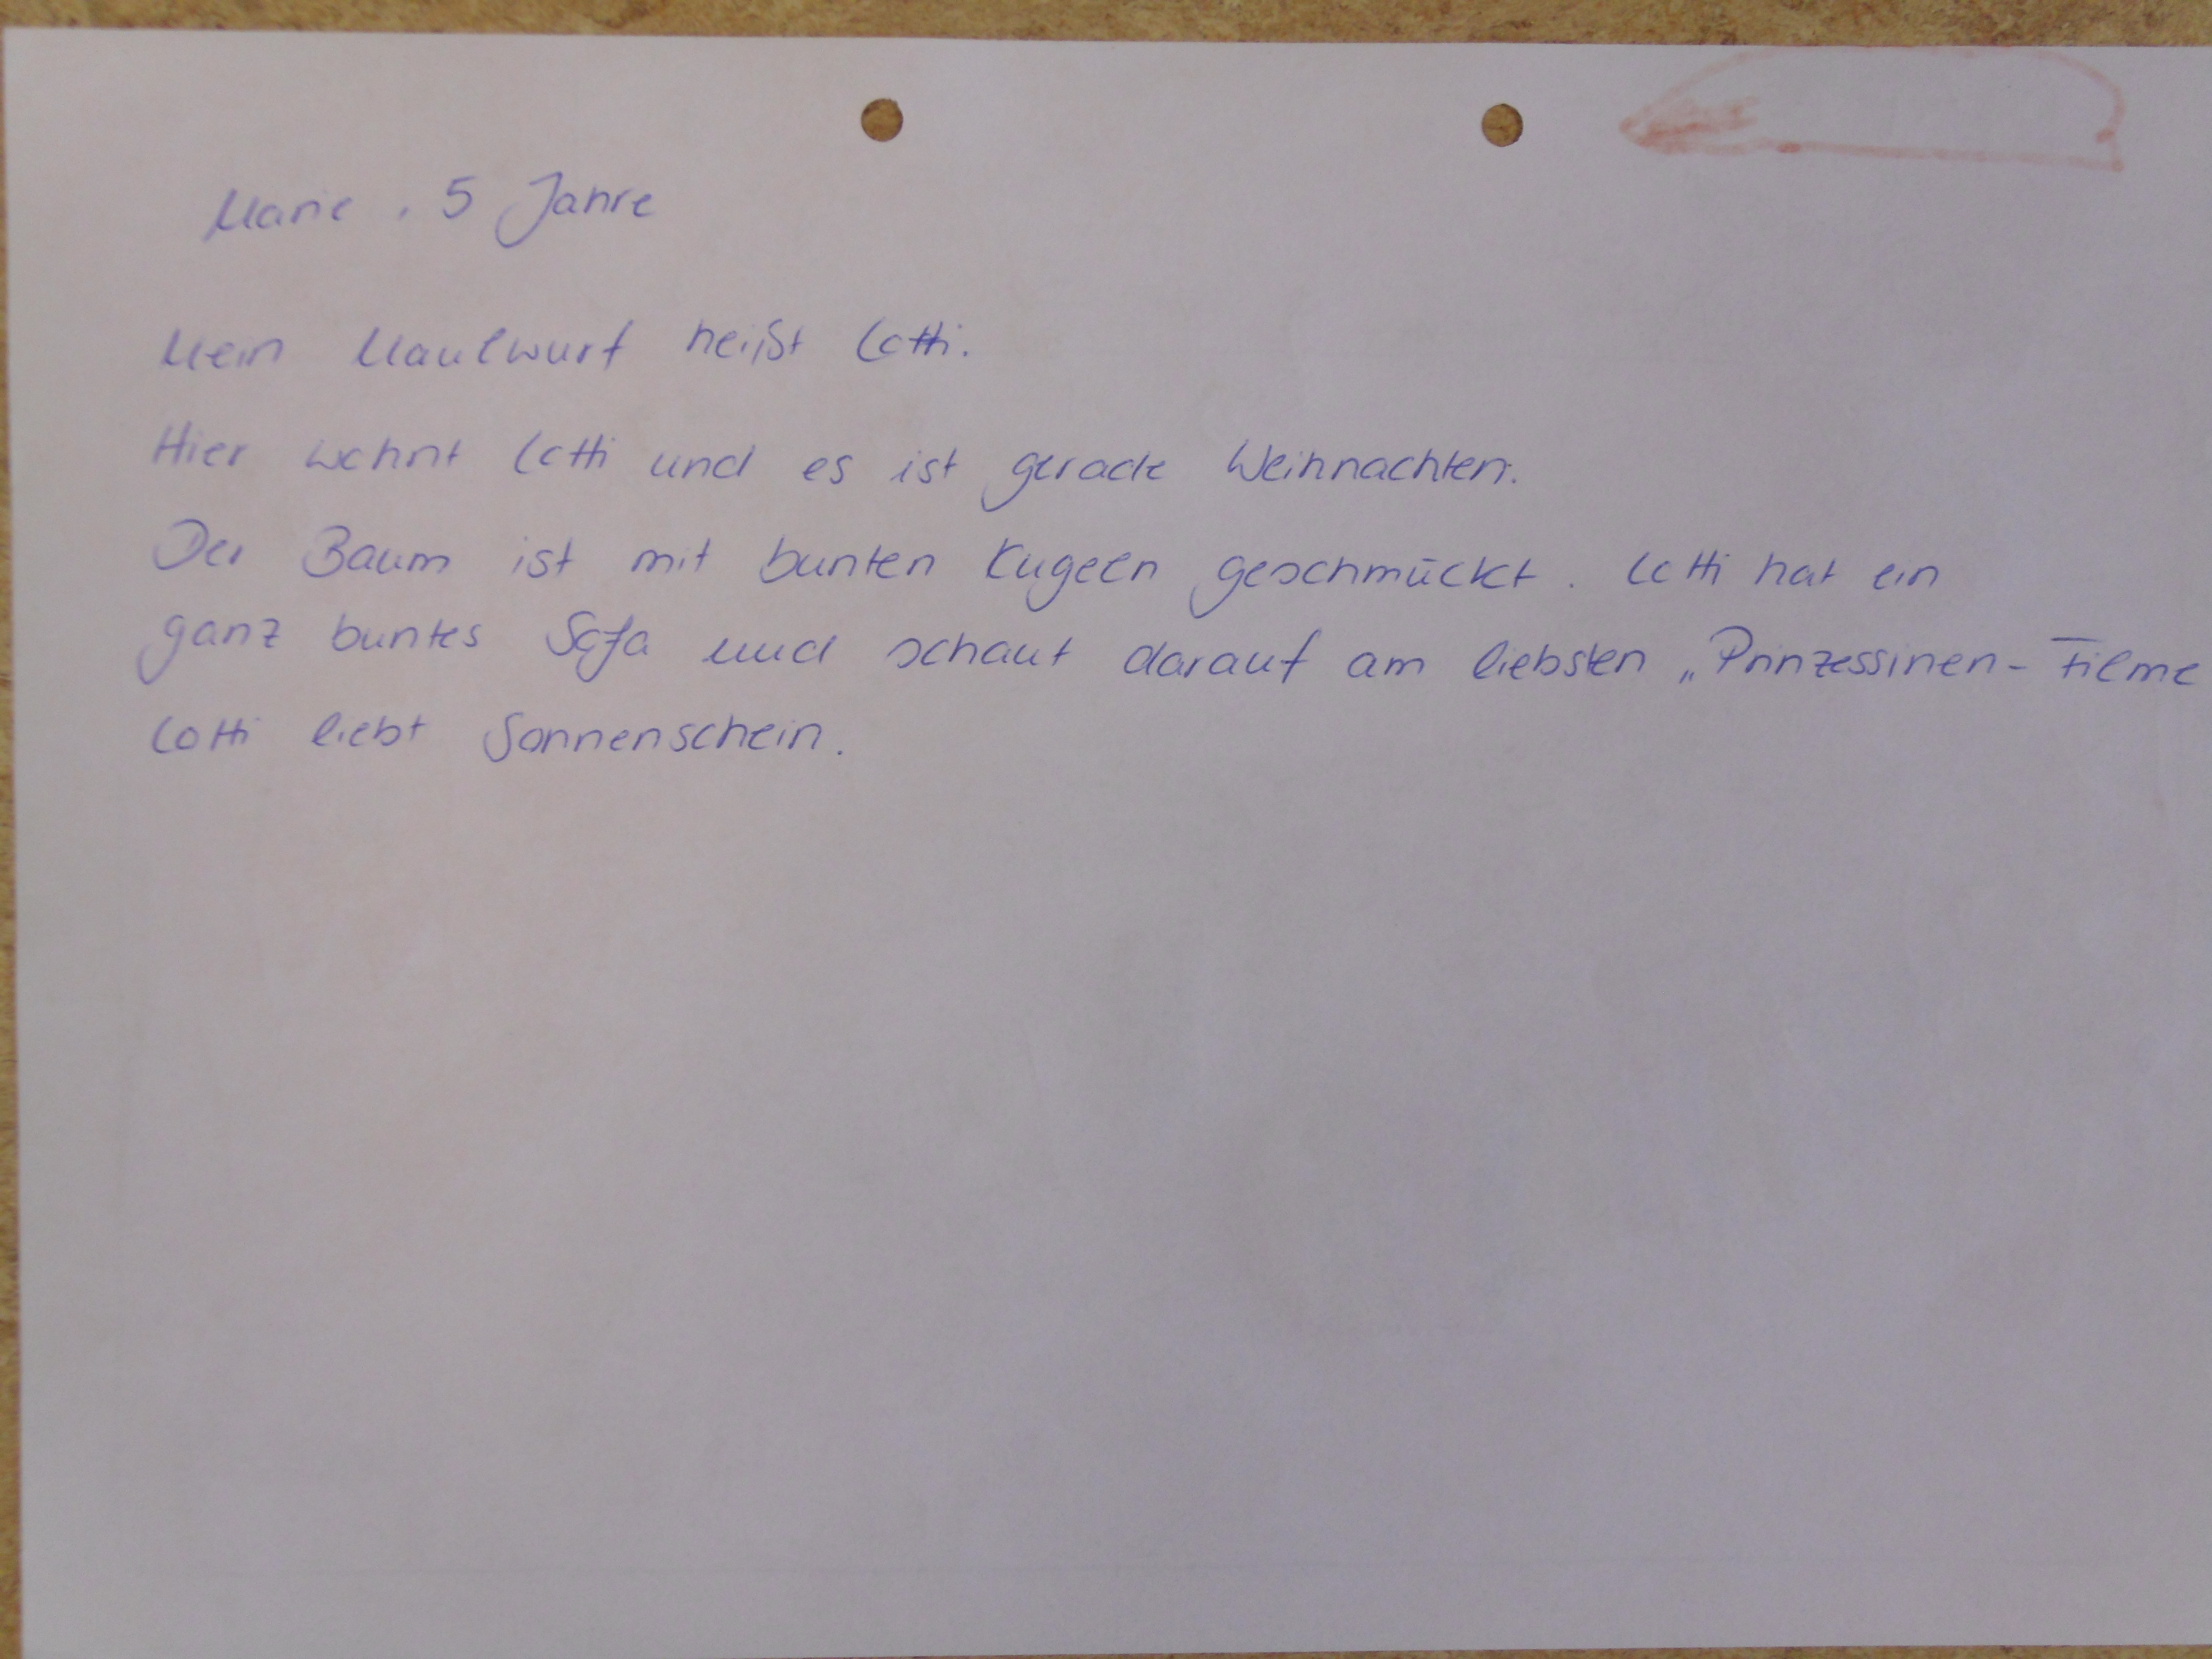 Marie, 5 Jahre
Mein Maulwurf heißt Lotti.
Hier wohnt Lotti und es ist gerade Weihnachten.
Der Baum ist mit bunten Kugeln geschmückt. Lotti hat ein
ganz buntes Sofa und schaut darauf am liebsten „Prinzessinen-Filme
Lotti liebt Sonnenschein.